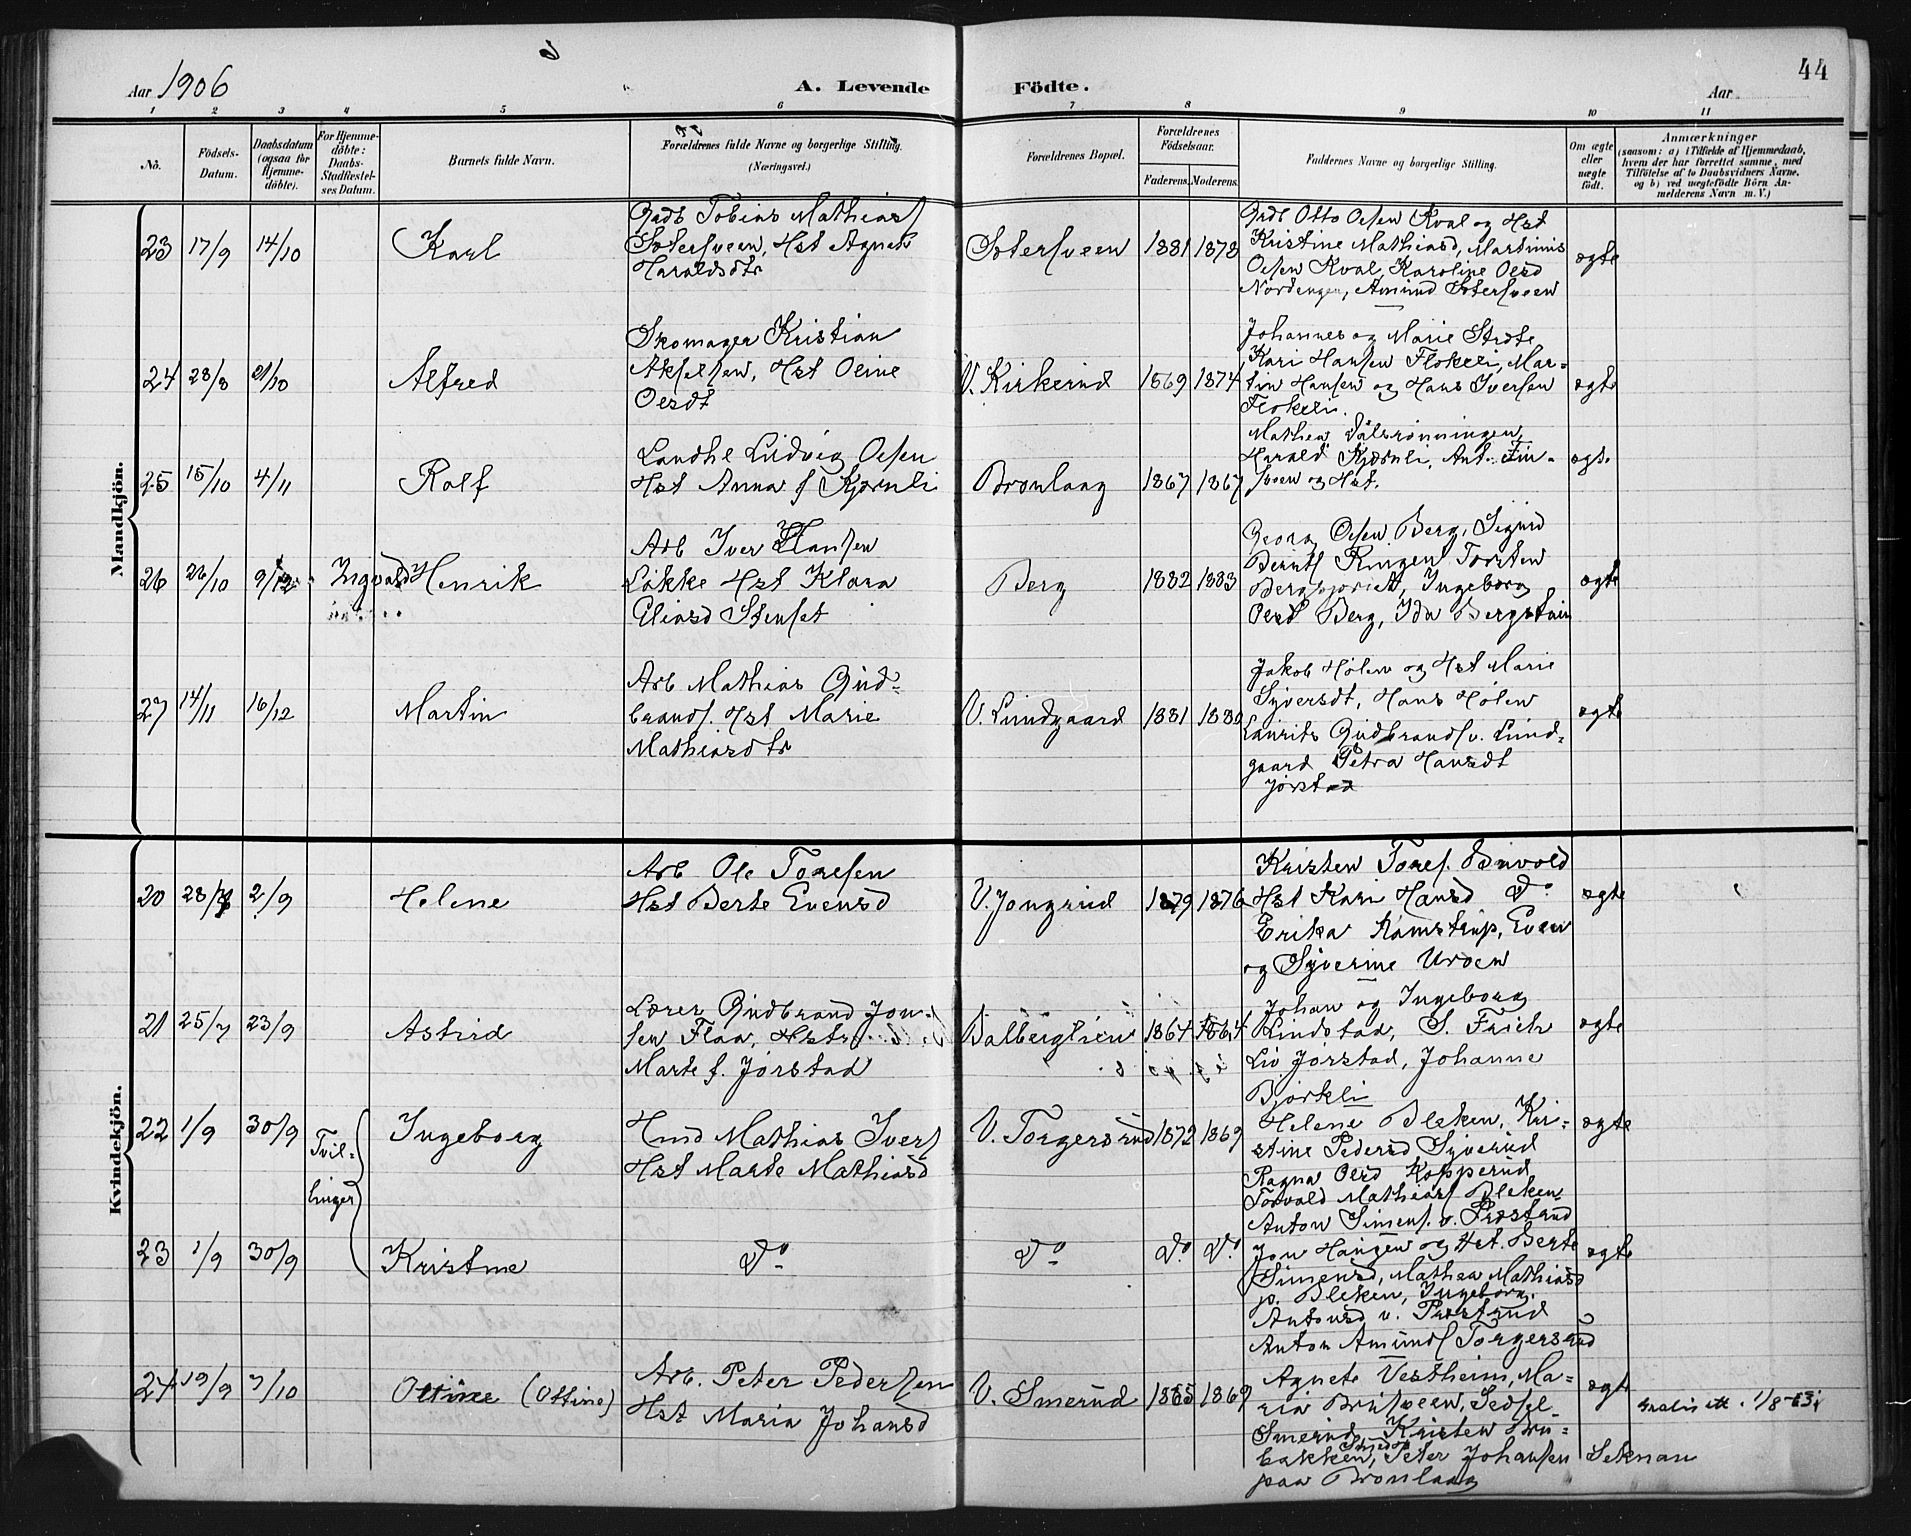 44
Aar 1906
A. Levende Födte.
Aar
1 2 3 4 5 6 7 8 9 10 11
No.
Födsels-
Datum.
Daabsdatum
(ogsaa for
Hjemme-
döbte).
For Hjemme-
döbte:
Daabs-
Stadfæstel-
ses Datum.
Barnets fulde Navn.
Forældrenes fulde Navne og borgerlige Stilling.
(Næringsvei.)
Forældrenes Bopæl.
Forældrenes
Födselsaar.
Faderens. Moderens.
Faddernes Navne og borgerlige Stilling.
Om ægte
eller
uægte
födt.
Anmærkninger
(saasom: a) i Tilfælde af Hjemmedaab,
hvem der har forrettet samme, med
Tilföielse af to Daabsvidners Navne,
og b) ved uægtefödte Börn An-
melderens Navn m. V.)
Mandkjön.
23 17/9 14/10 Karl
Gadb Tobias Mathiass
Sotersveen, Hst Agnete
Haraldsdtr
Sotersveen 1881 1878
Gadb Otto Olsen Kval og Hst
Kristine Mathiasd, Martinus
Olsen Kval, Karoline Olsd
Nordengen, Amund Sotersveen
ægte
24 28/8 21/10 Alfred
Skomager Kristian
Akselsen, Hst Oline
Olsdt
V. Kirkerud 1869 1874
Johannes og Marie Strøte
Kari Hansen Flokeli, Mar-
tin Hansen og Hans Iversen
Flokeli.
ægte
25 15/10 4/11 Rolf
Landhl Ludvig Olsen
Hst Anna f Kjørnli
Bronlaag 1867 1867
Mathea Dalsrønningen,
Harald Kjørnli, Ant. Fin-
sveen og Hst.
ægte
26 26/10 9/12 Ingvald Henrik
Arb Iver Hansen
Løkke Hst Klara
Eliasd Stenset
Berg 1882 1883
Georg Olsen Berg, Sigurd
Bernts Ringen Torsten
Ingeborg
Olsd Berg, Ida
ægte
27 14/11 16/12 Martin
Arb Mathias Gud-
brands. Hst Marie
Mathiasdtr
V. Lundgaard 1881 1880
Jakob Holen og Hst Marie
Syversdt, Hans Holen
Laurits Gudbrands v. Lund-
gaard Petra Hansdt
Jørstad
ægte
Kvindekjön.
20 28/7 2/9 Helene
Arb Ole Toresen
Hst Berte Evensd
V. Jongrud 1879 1876
Kristen Tores. Bøvold
Hst Kari Hansd Do
Erika Kamstrup, Even
og Syverine Uroen
ægte
21 25/7 23/9 Astrid
Lærer Gudbrand Jon-
sen Flaa, Hstr
Marte f. Jørstad
Balberglien 1864 1864
Johan og Ingeborg
Lindstad, S. Frich
Liv Jørstad, Johanne
Bjørkli
ægte
22 1/9 30/9 Tvil- Ingeborg
linger
Hmd Mathias Ivers
Hst Marte Mathiasd
V. Torgersrud 1872 1869
Helene Bleken, Kir-
stine Pedersd Syverud
Ragna Olsd Kopperud
Torvald Mathias Bleken
Anton Simens. v. Prøstrud
ægte
23 1/9 30/9 Kristine
Do Do Do Do
Jon Haugen og Hst. Berte
Simensd, Mathea Mathiasd
p. Bleken, Ingeborg
Antonsd v. Prøstrud
Anton Amunds Torgersrud
ægte
24 19/9 7/10 Ottine (Ottine)
Arb. Peter Pedersen
Hst Maria Johansd
V. Smerud 1865 1869
Agnete Vestheim, Ma-
ria Brusveen, Sedsel
Smerud, Kristen Bru-
bakken, Peter Johansen Seknau
paa Bronlaag
ægte
Gratis att. 1/8-53